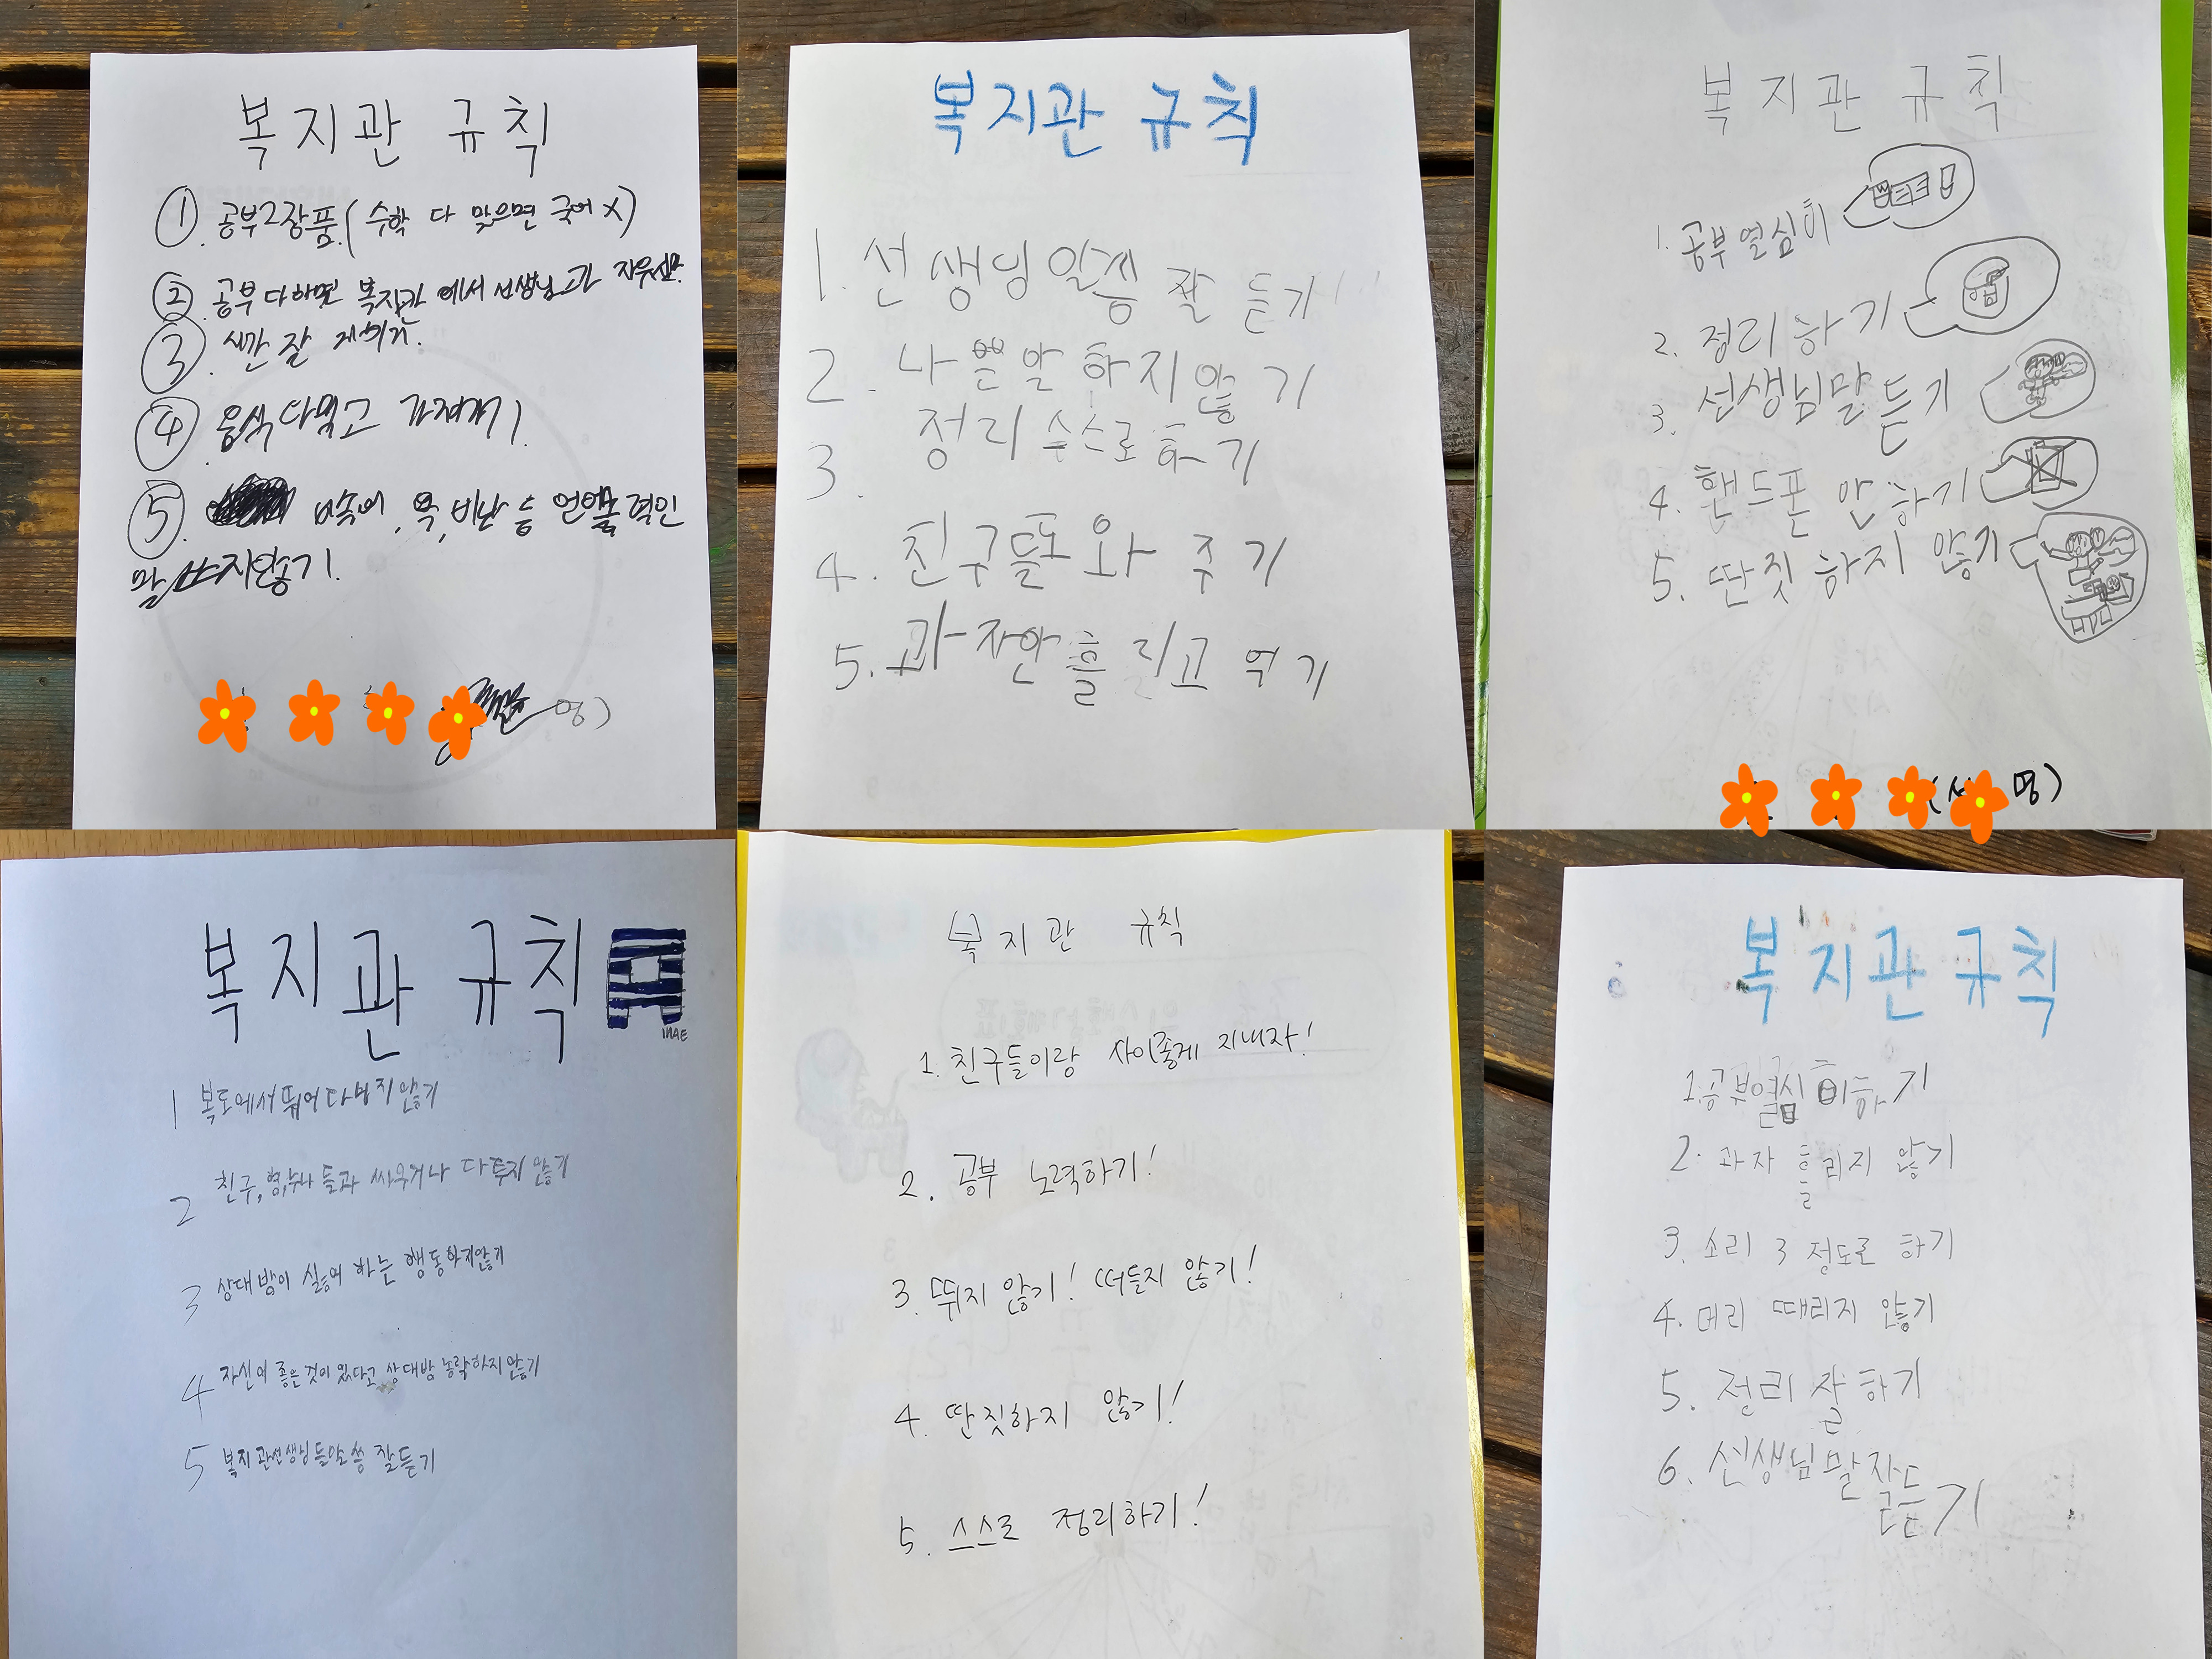 복지관 규칙
① 공부 2장품.(수학 다 맞으면 국어 X)
② 공부 다하면 복지관에서 선생님과
③ 시간 잘 지키기.
④ 음식 다먹고
⑤ 비속어, 욕, 비난 등 언어폭력적인
말 쓰지않기.
명)
복지관 규칙
1. 선생님 말씀 잘 듣기
2. 나쁜말 하지 않기
3. 정리 스스로 하기
4. 친구들 도와 주기
5. 과자 안 흘리고 먹기
복지관 규칙
1. 공부 열심히
2. 정리하기
3. 선생님 말 듣기
4. 핸드폰 안 하기
5. 딴짓 하지 않기
명)
복지관 규칙
MAE
1 복도에서 뛰어다니지 않기
2 친구, 형, 누나 들과 싸우거나 다투지 않기
3 상대방이 싫어 하는 행동하지않기
4 자신이 좋은것이 있다고 상대방 놀락하지않기
5 복지관선생님들말씀 잘듣기
복지관 규칙
1. 친구들이랑 사이좋게 지내자!
2. 공부 노력하기!
3. 뛰지 않기! 떠들지 않기!
4. 딴짓하지 않기!
5. 스스로 정리하기!
복지관 규칙
1. 공부열심히하기
2. 과자 흘리지 않기
3. 소리 3 정도로 하기
4. 머리 때리지 않기
5. 정리 잘 하기
6. 선생님 말 잘 듣기